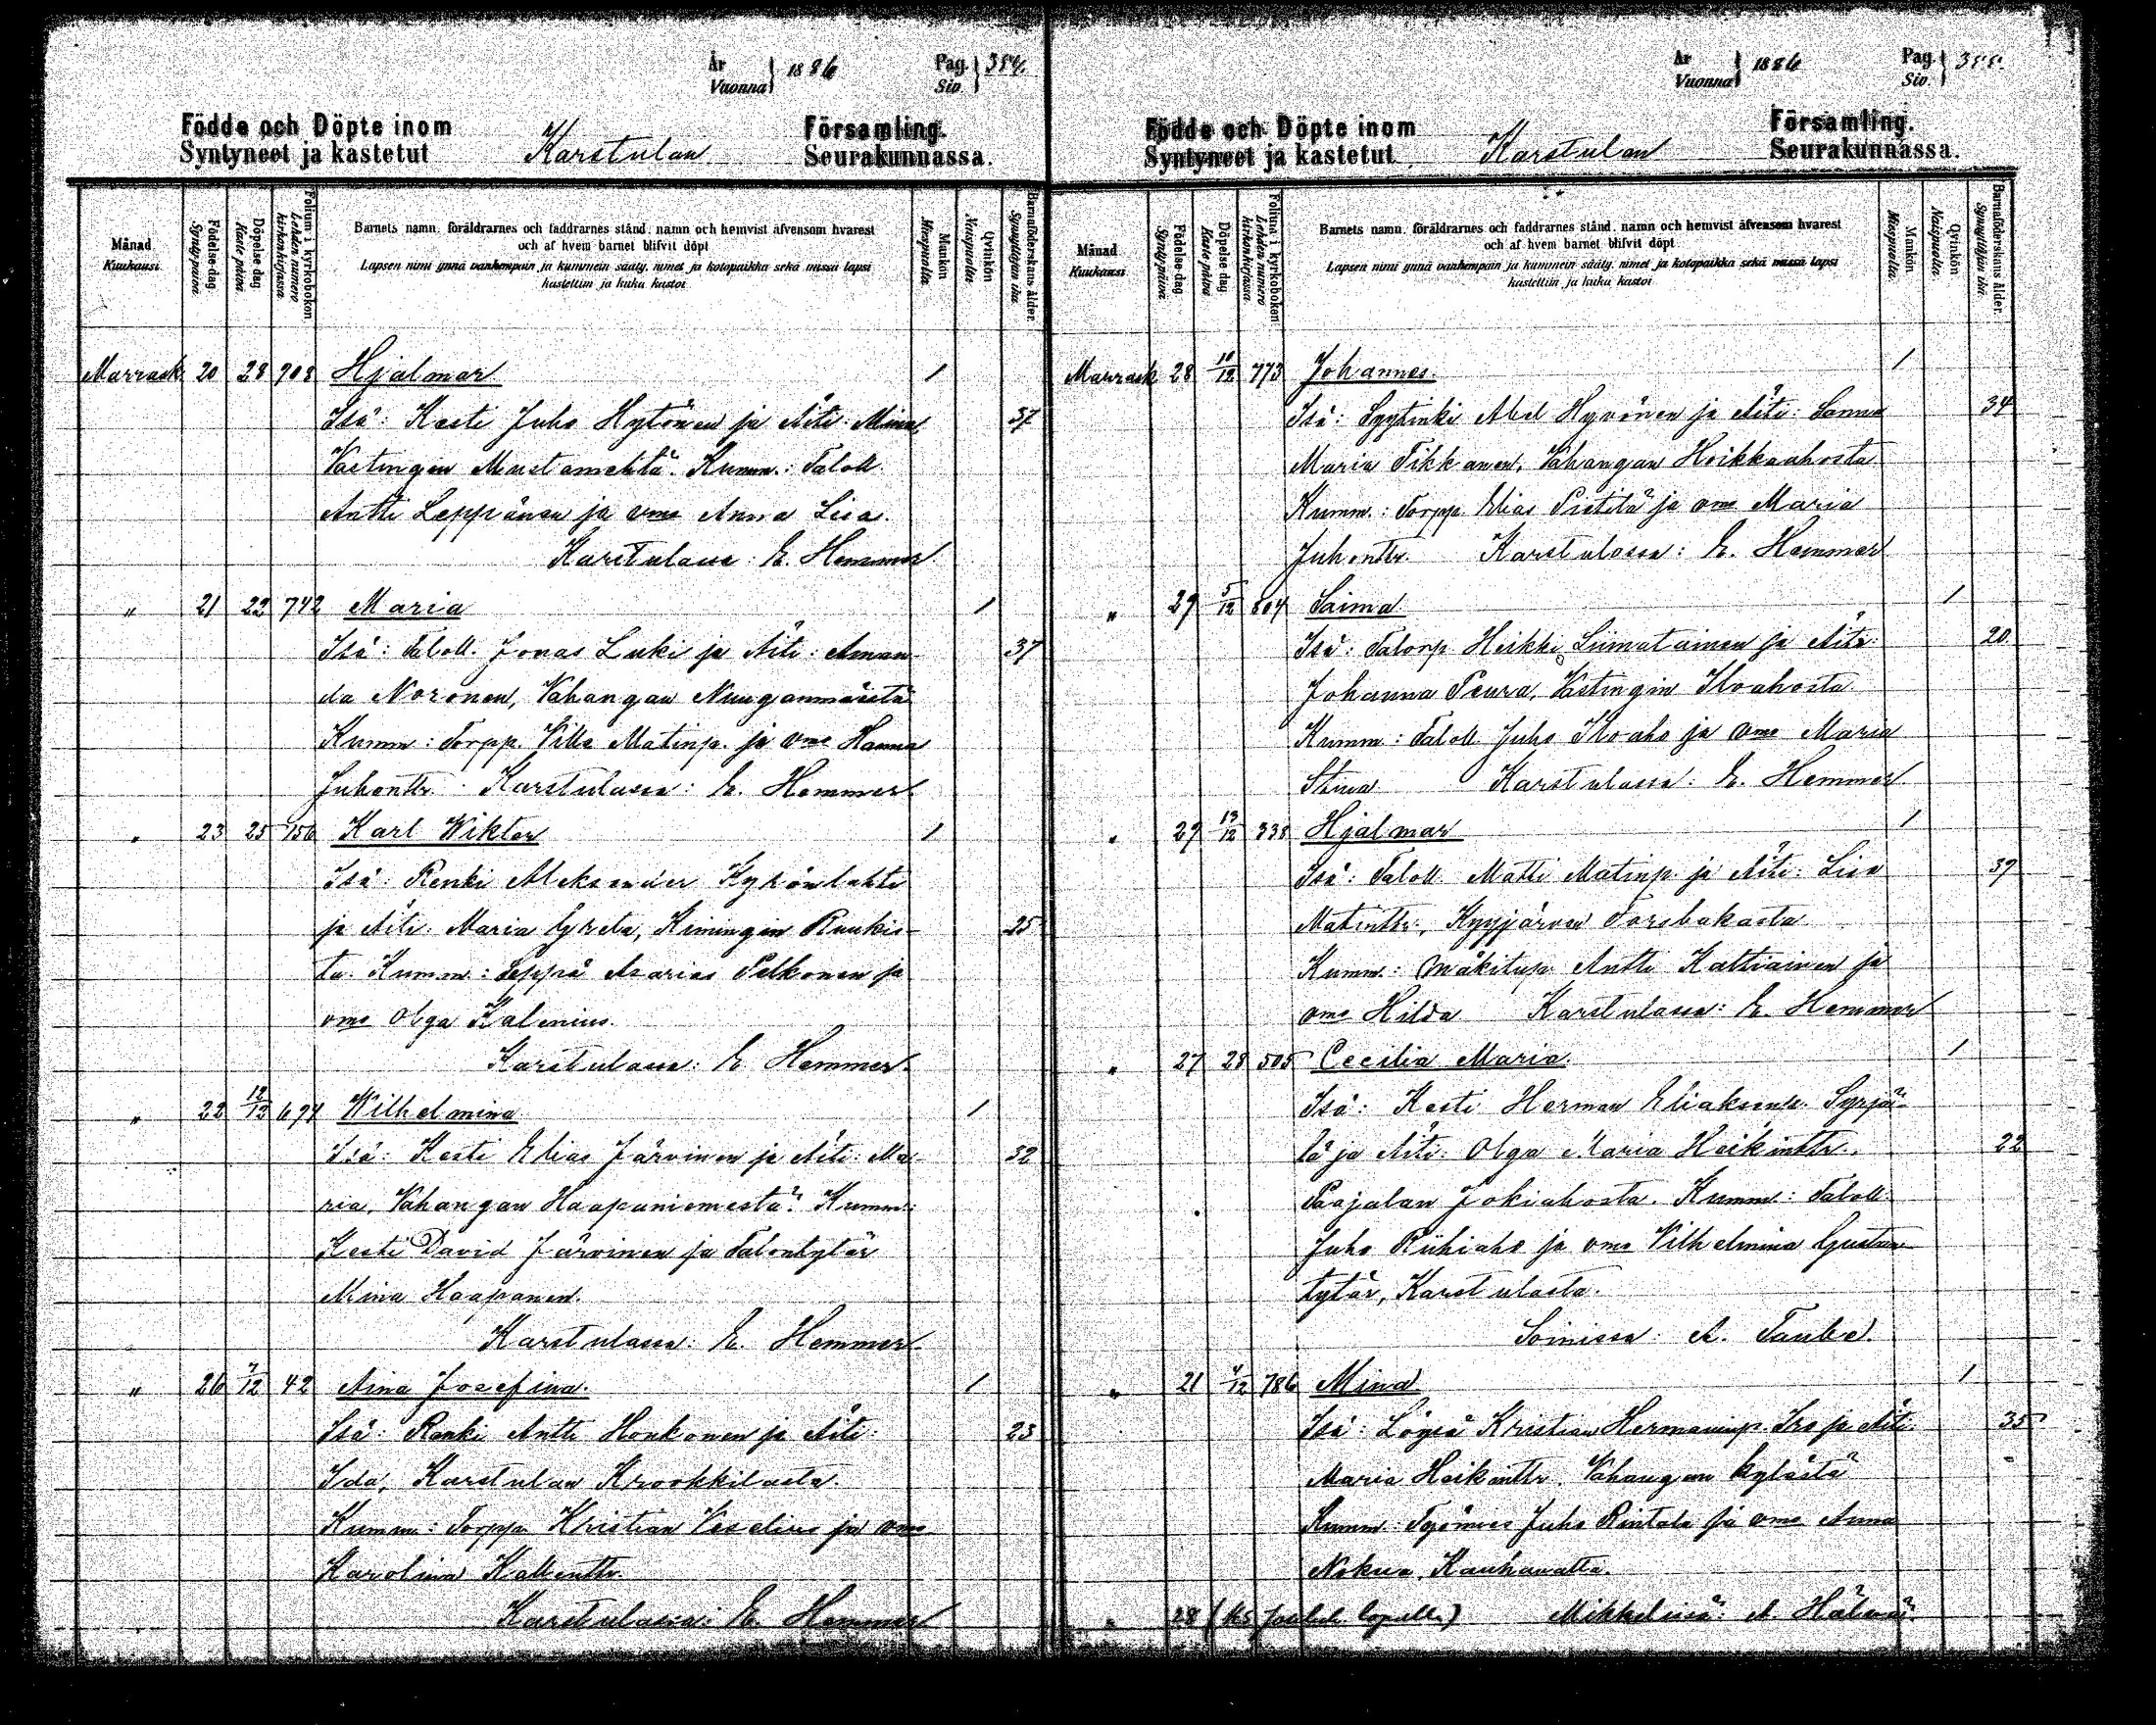 År
Vuonna } 1886
Pag.
Siv. } 354.
Födde och Döpte inom
Syntyneet ja kastetut
Karstulan
Församling.
Seurakunnassa.
Månad
Kuukausi
Födelse dag
Synty päivä
Döpelse dag
Kaste päivä
Folium i kyrkoboken
Lehden numero kirkonkirjassa
Barnets namn, föräldrarnes och faddrarnes stånd, namn och hemvist äfvensom hvarest
och af hvem barnet blifvit döpt
Lapsen nimi ynnä vanhempain ja kummein sääty, nimet ja kotopaikka sekä missä lapsi
kastettiin ja kuka kastoi
Mankön
Miespuolta
Qvinkön
Naispuolta
Barnaföderskans ålder.
Synnyttäjän ikä
Marrask 20 28 708 Hjalmar 1
Isä: Kesti Juho Hytönen ja Äiti: Mina 37
Vastingin Mustamehtä. Kumm.: Taloll.
Antti Leppänen ja vmo Anna Liisa.
Karstulassa: E. Hemmer
" 21 22 742 Maria 1
Isä: Taloll. Jonas Luki ja Äiti: Aman- 37
da Noronen, Vahangan
Kumm: Torpp. Ville Matinp. ja vmo Hanna
Juhontr. Karstulassa: E. Hemmer
" 23 25 156 Karl Wiktor 1
Isä: Renki Aleksander Kyrönlahti
ja Äiti: Maria Greta, Kimingin Ruukis- 25
ta. Kumm: Seppä Asarias Pelkonen ja
vmo Olga Kalenius.
Karstulassa: E. Hemmer
" 22 12/12 694 Wilhelmina 1
Isä: Kesti Elias Järvinen ja Äiti: Ma- 32
ria, Vahangan Haapaniemestä. Kumm:
Kesti David Järvinen ja Talontytär
Mina Haapanen.
Karstulassa: E. Hemmer
" 26 7/12 42 Aina Josefina. 1
Isä: Renki Antti Honkonen ja Äiti: 23
Ida, Karstulan Krookkilasta.
Kumm: Torpp. Kristian Veselius ja vmo
Karolina Kallentr.
Karstulassa: E. Hemmer
År
Vuonna } 1886
Pag.
Siv. } 355.
Födde och Döpte inom
Syntyneet ja kastetut
Karstulan
Församling.
Seurakunnassa.
Månad
Kuukausi
Födelse dag
Synty päivä
Döpelse dag
Kaste päivä
Folium i kyrkoboken
Lehden numero kirkonkirjassa
Barnets namn, föräldrarnes och faddrarnes stånd, namn och hemvist äfvensom hvarest
och af hvem barnet blifvit döpt
Lapsen nimi ynnä vanhempain ja kummein sääty, nimet ja kotopaikka sekä missä lapsi
kastettiin ja kuka kastoi
Mankön
Miespuolta
Qvinkön
Naispuolta
Barnaföderskans ålder.
Synnyttäjän ikä
Marrask 28 10/12 773 Johannes. 1
Isä: Syytinki Abel Hyvönen ja Äiti: Sanna 34
Maria Tikkanen, Vahangan Heikkaahosta
Kumm: Torpp. Elias Pietilä ja vmo Maria
Juhontr. Karstulassa: E. Hemmer
" 29 5/12 804 Saima 1
Isä: Talorp. Heikki Liimatainen ja Äiti: 20
Johanna Peura, Vastingin Iloahosta
Kumm: Taloll. Juho Iloaho ja vmo Maria
Stina Karstulassa: E. Hemmer
" 29 13/12 338 Hjalmar 1
Isä: Taloll. Matti Matinp. ja Äiti: Lisa 39
Matintr., Kyyjärven Forsbakasta
Kumm: Mäkitup. Antti Kattiainen ja
vmo Hilda Karstulassa: E. Hemmer
" 27 28 505 Cecilia Maria. 1
Isä: Kesti Herman Eliaksenp. Syrjä-
lä ja Äiti: Olga Maria Heikintr., 22
Paajalan Jokiahosta. Kumm: Taloll.
Juho Riihiaho ja vmo Vilhelmina Gustan-
tytär, Karstulasta.
Soinissa: A. Taube.
" 21 4/12 786 Mina 1
Isä: Löysä Kristian Hermaninp. Iro ja Äiti 35
Maria Heikintr. Vahangan kylästä
Kumm: Työmies Juho Rintala ja vmo Anna
Nokua, Kauhavalta.
" 28 (ks. lopulla) Mikkelissä: A.